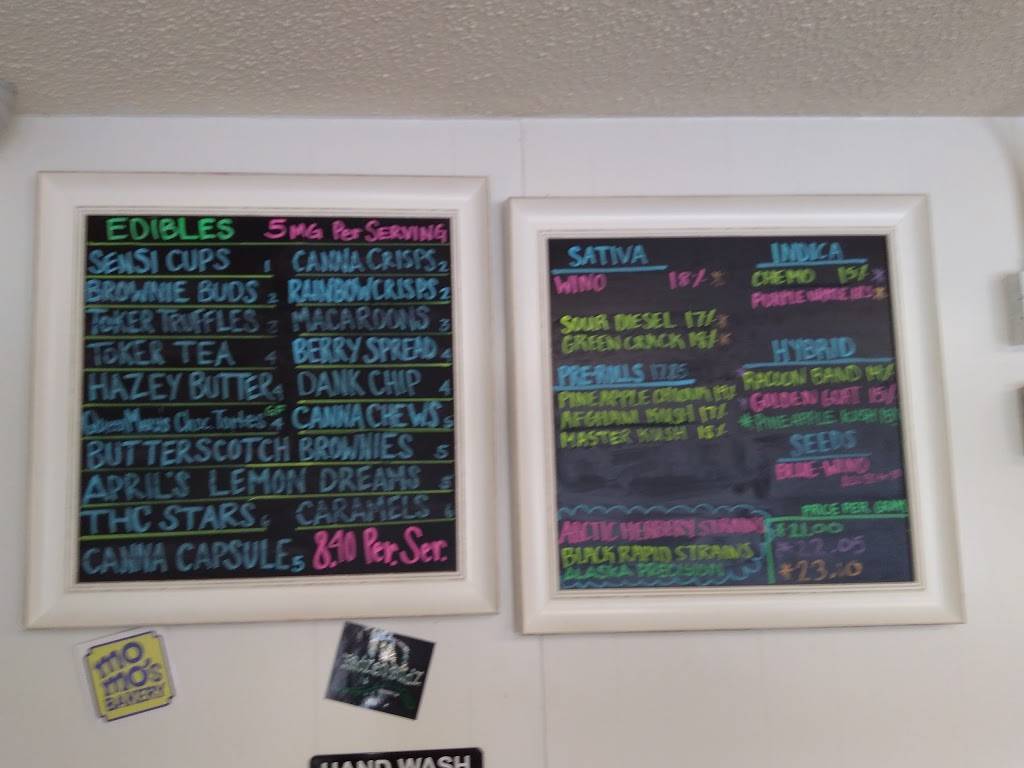 EDIBLES 5MG Per SERVING
SENSI CUPS 1 CANNA CRISPS 2
BROWNIE BUDS 2 RAINBOW CRISPS 2
TOKER TRUFFLES 3 MACAROONS 3
TOKER TEA 4 BERRY SPREAD 4
HAZEY BUTTER 4 DANK CHIP 4
Choc. GF 4 CANNA CHEWS 5
BUTTERSCOTCH BROWNIES 5
APRIL'S LEMON DREAMS 5
THC STARS 6 CARAMELS 6
CANNA CAPSULE 5 8.40 Per. Ser.
SATIVA
WINO 18%*
SOUR DIESEL 17%*
GREEN CRACK 18%*
PRE-ROLLS 17.85
PINEAPPLE
AFGHANI KUSH 17%
MASTER KUSH 18%
INDICA
CHEMO 15%*
PURPLE
HYBRID
RACOON BAND 14%
*GOLDEN GOAT 15%
*PINEAPPLE KUSH
SEEDS
BLUE-WINO
PRICE PER GRAM
ARCTIC HERBERY STRAINS *21.00
BLACK RAPID STRAINS *22.05
ALASKA PRECISION *23.10
MO
MO'S
BAKERY
HAND WASH